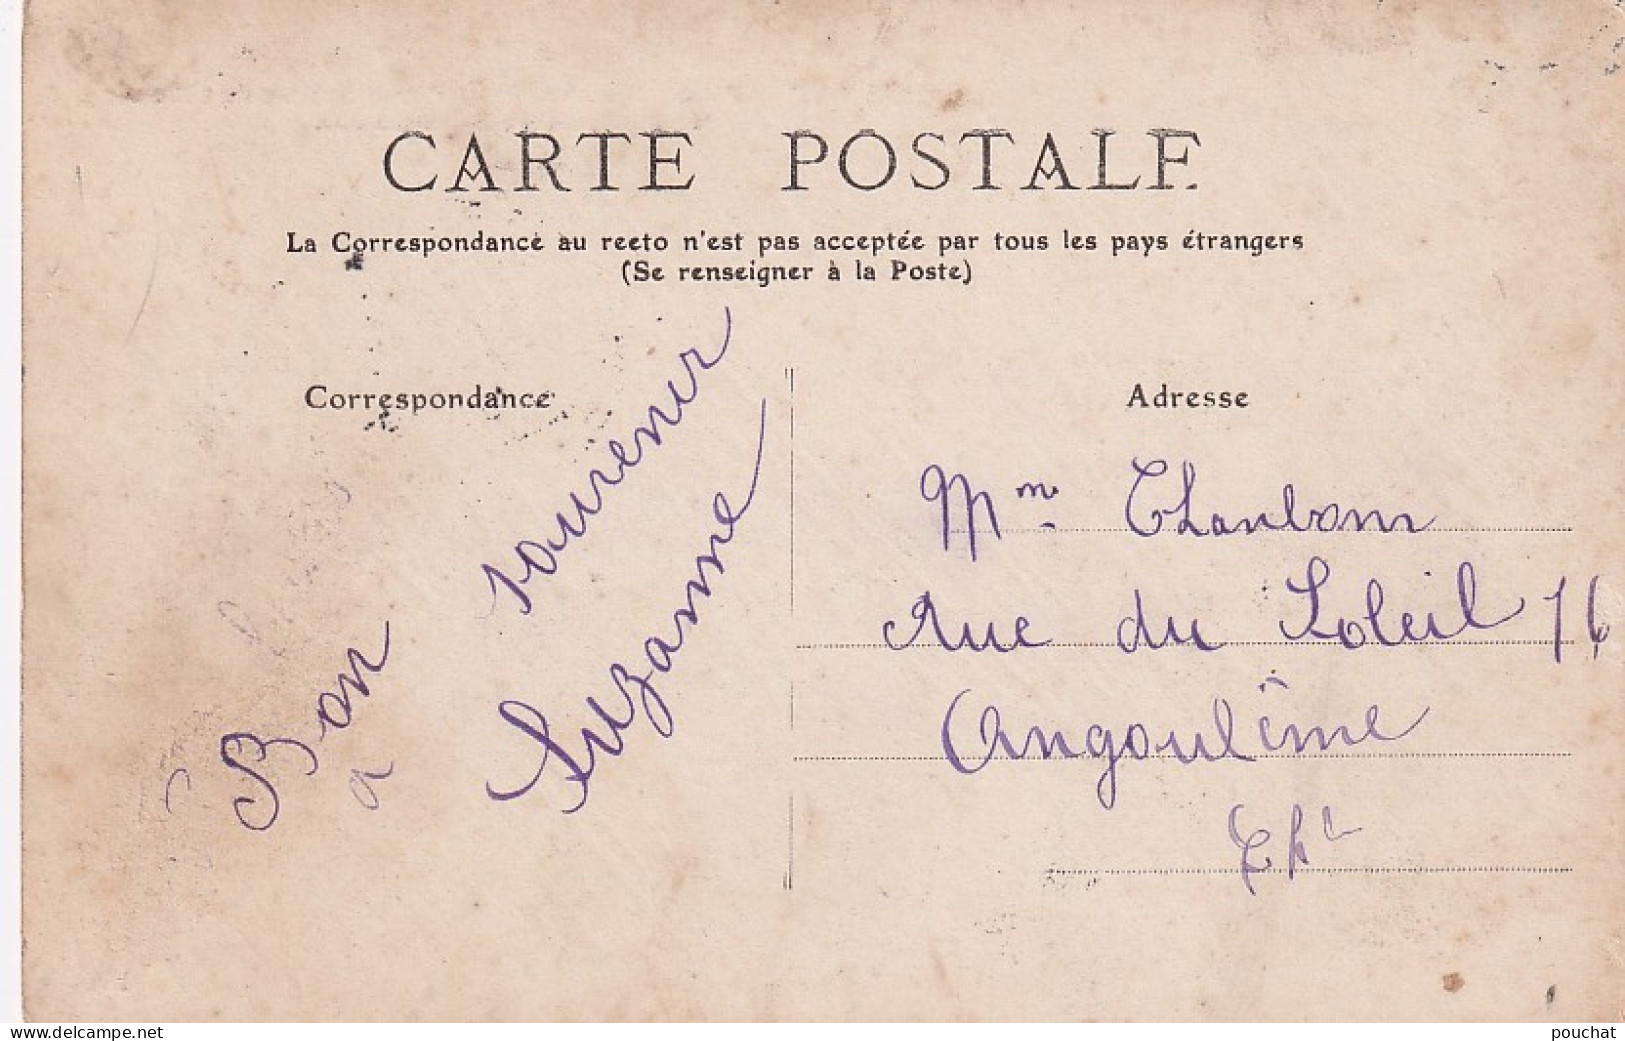 CARTE POSTALE
La Correspondance au recto n'est pas acceptée par tous les pays étrangers
(Se renseigner à la Poste)
Correspondance
Bon souvenir
a
Suzanne
Adresse
Mme
Rue du Soleil 16
Angoulême
Delcampe.net
pouchat